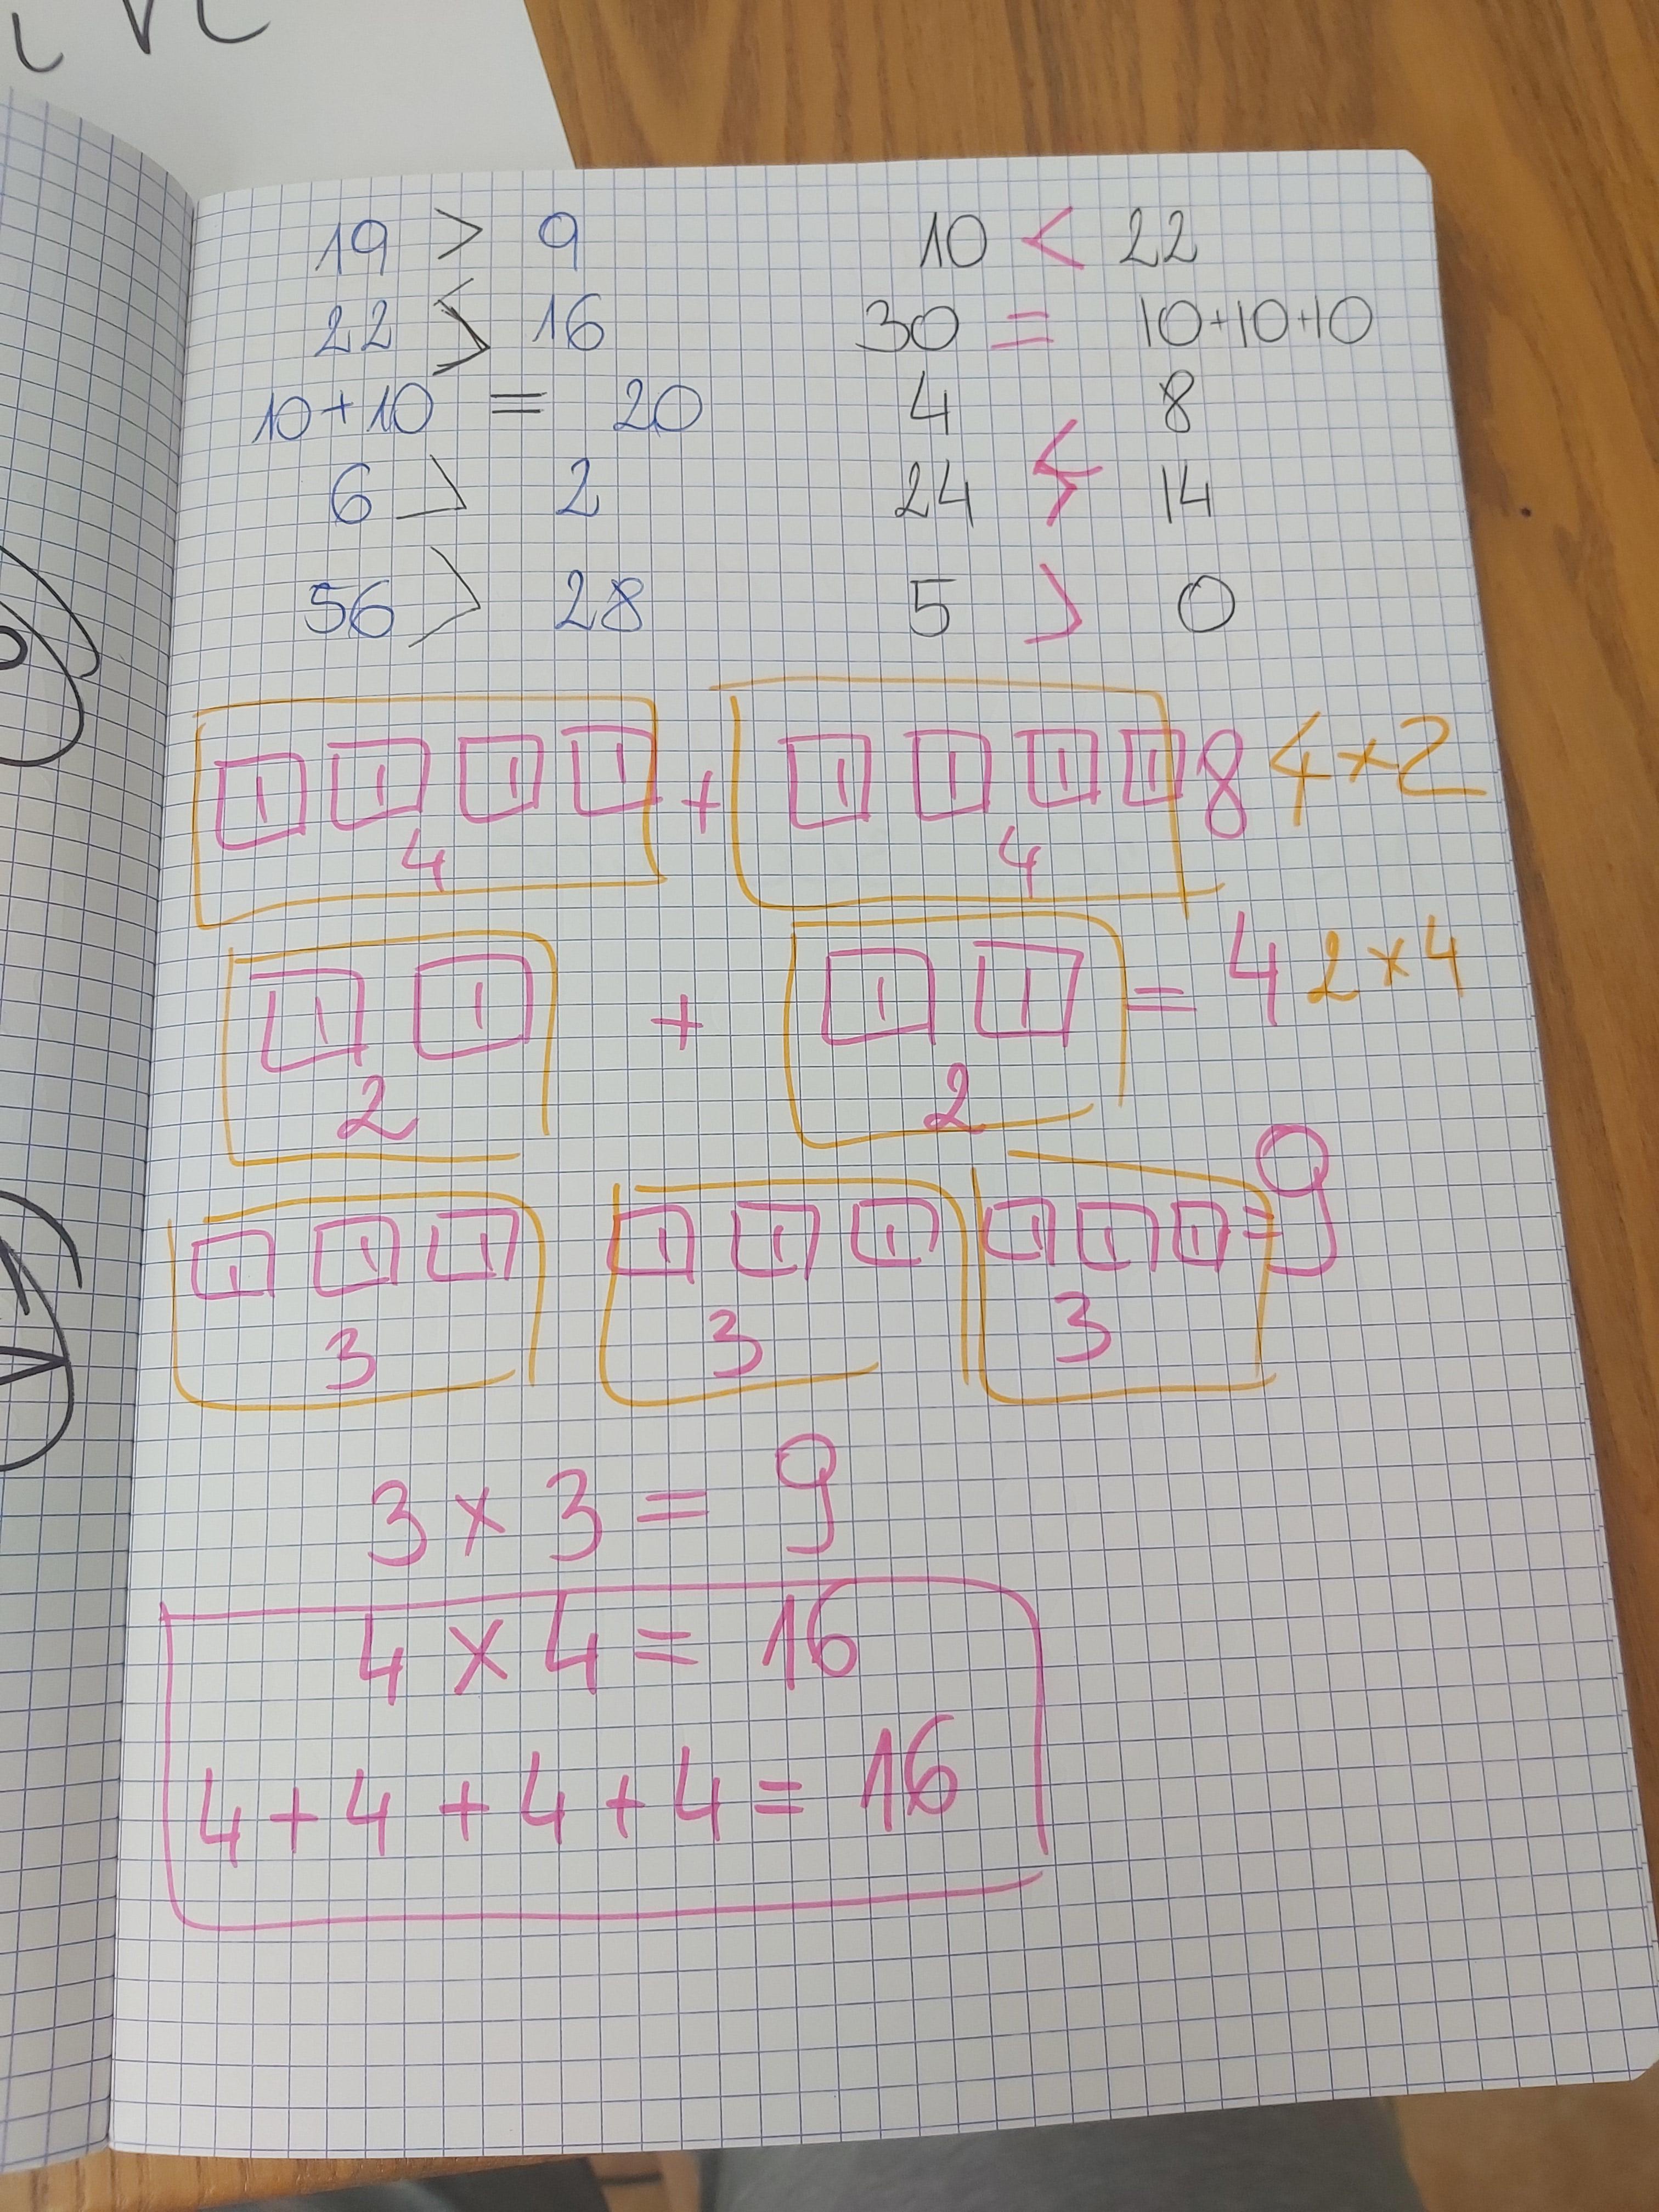 19 > 9
22 > 16
10+10 = 20
6 > 2
56 > 28
10 < 22
30 = 10+10+10
4 < 8
24 > 14
5 > 0
1 1 1 1 + 1 1 1 1 8 4×2
4 4
1 1 + 1 1 = 4 2×4
2 2
1 1 1 1 1 1 1 1 1 = 9
3 3 3
3 × 3 = 9
4 × 4 = 16
4 + 4 + 4 + 4 = 16